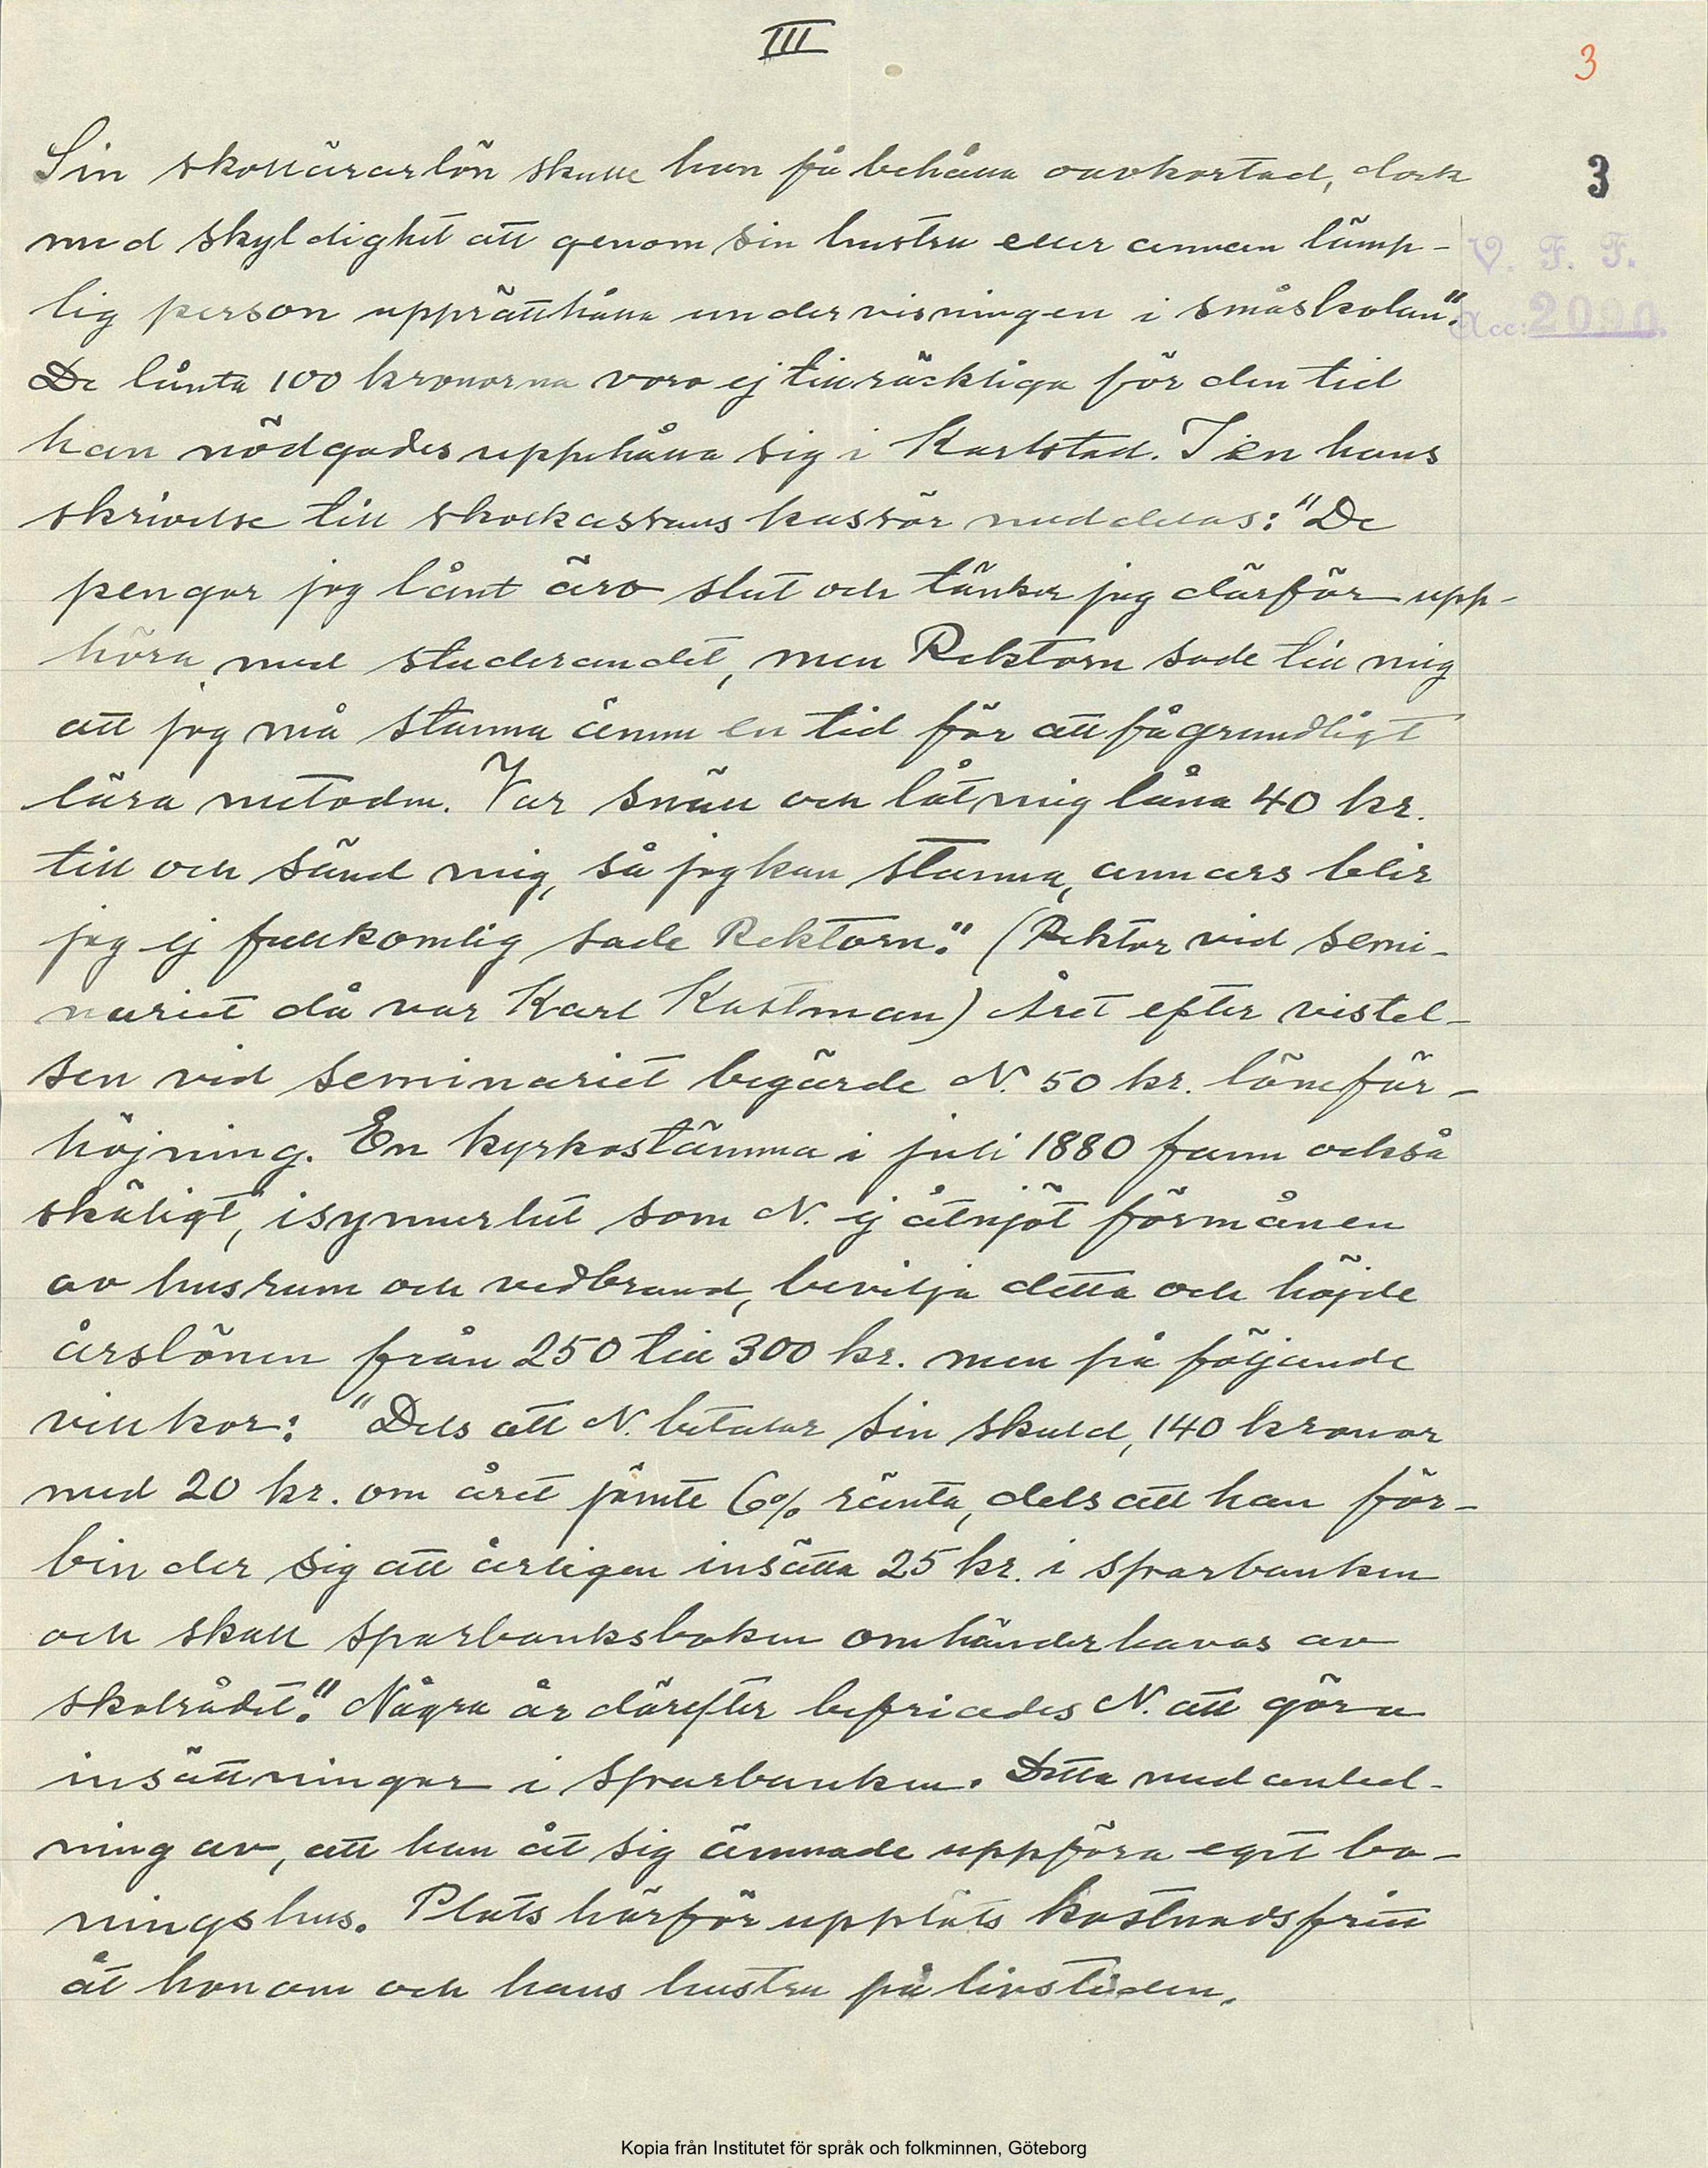 III
3
3
V. F. F.
Acc: 2090.
Sin skollärarlön skulle han få behålla oavkortad, dock
med skyldighet att genom sin hustru eller annan lämp-
lig person upprätthålla undervisningen i småskolan."
De lånta 100 kronorna voro ej tillräckliga för den tid
han nödgades uppehålla sig i Karlstad. I en hans
skrivelse till skolkassans kassör meddelas: "De
pengar jag lånt äro slut och tänker jag därför upp-
höra med studerandet, men Rektorn sade till mig
att jag må stanna ännu en tid för att få grundligt
lära metoden. Var snäll och låt mig låna 40 kr.
till och sänd mig, så jag kan stanna, annars blir
jag ej fullkomlig sade Rektorn." (Rektor vid semi-
nariet då var Karl Kastman) Året efter vistel-
sen vid seminariet begärde N. 50 kr. löneför-
höjning. En kyrkostämma i juli 1880 fann också
skäligt, isynnerhet som N. ej åtnjöt förmånen
av husrum och vedbrand, bevilja detta och höjde
årslönen från 250 till 300 kr. men på följande
villkor: "Dels att N. betalar sin skuld, 140 kronor
med 20 kr. om året jämte 6% ränta, dels att han för-
binder sig att årligen insätta 25 kr. i sparbanken
och skall sparbanksboken omhänderhavas av
skolrådet." Några år därefter befriades N. att göra
insättningar i sparbanken. Detta med anled-
ning av, att han åt sig ämnade uppföra eget bo-
ningshus. Plats härför uppläts kostnadsfritt
åt honom och hans hustru på livstiden.
Kopia från Institutet för språk och folkminnen, Göteborg